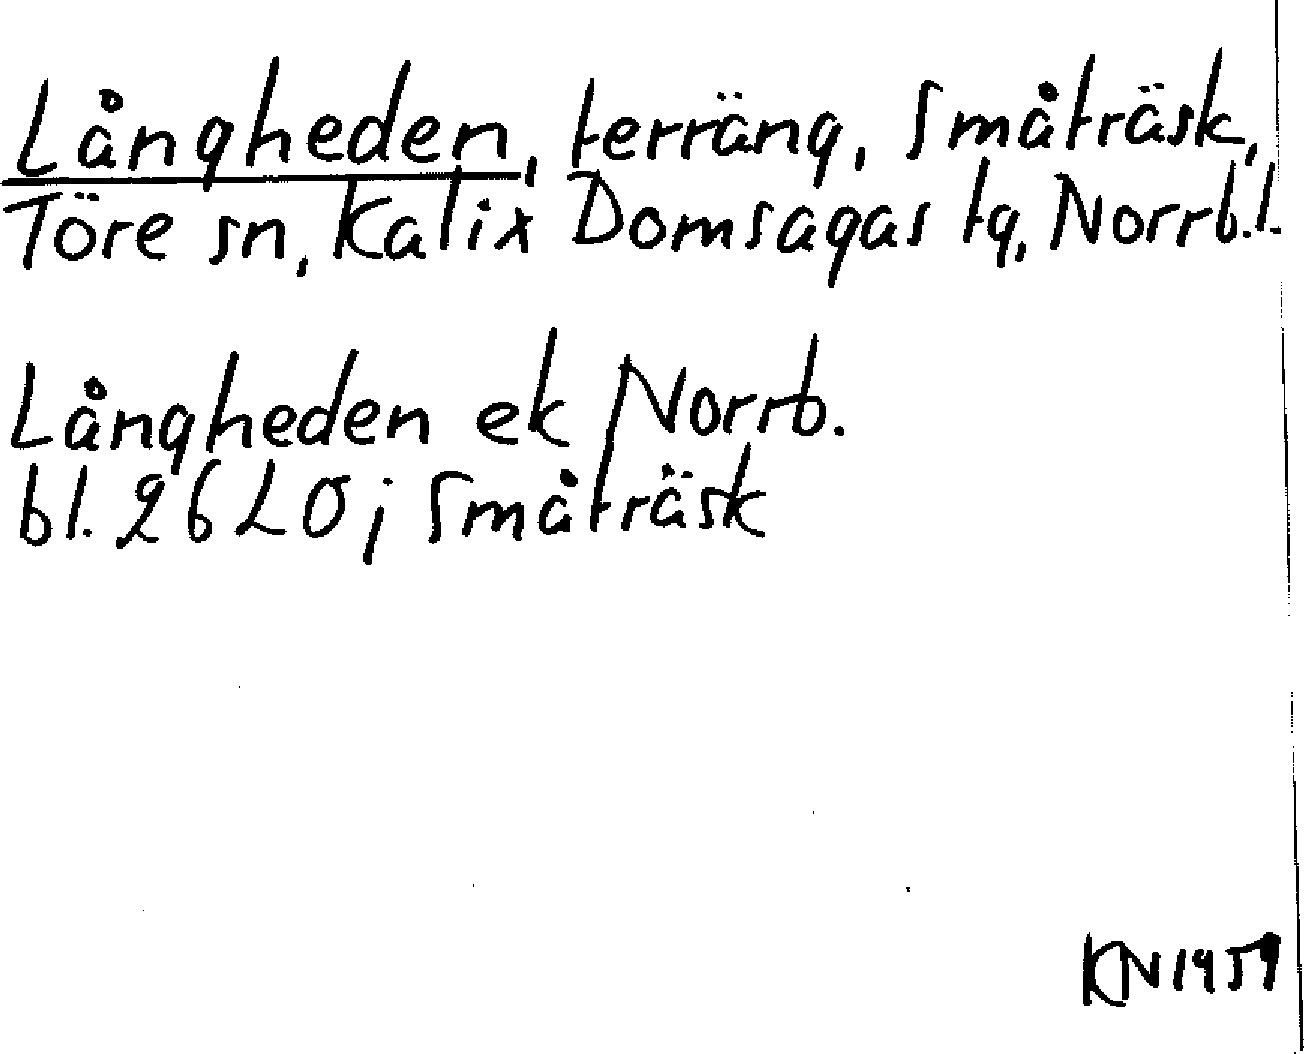 Långheden, terräng, Småträsk,
Töre sn, Kalix Domsagas tg, Norrb.l.
Långheden ek Norrb.
bl. 26 LO; Småträsk
KN 1959